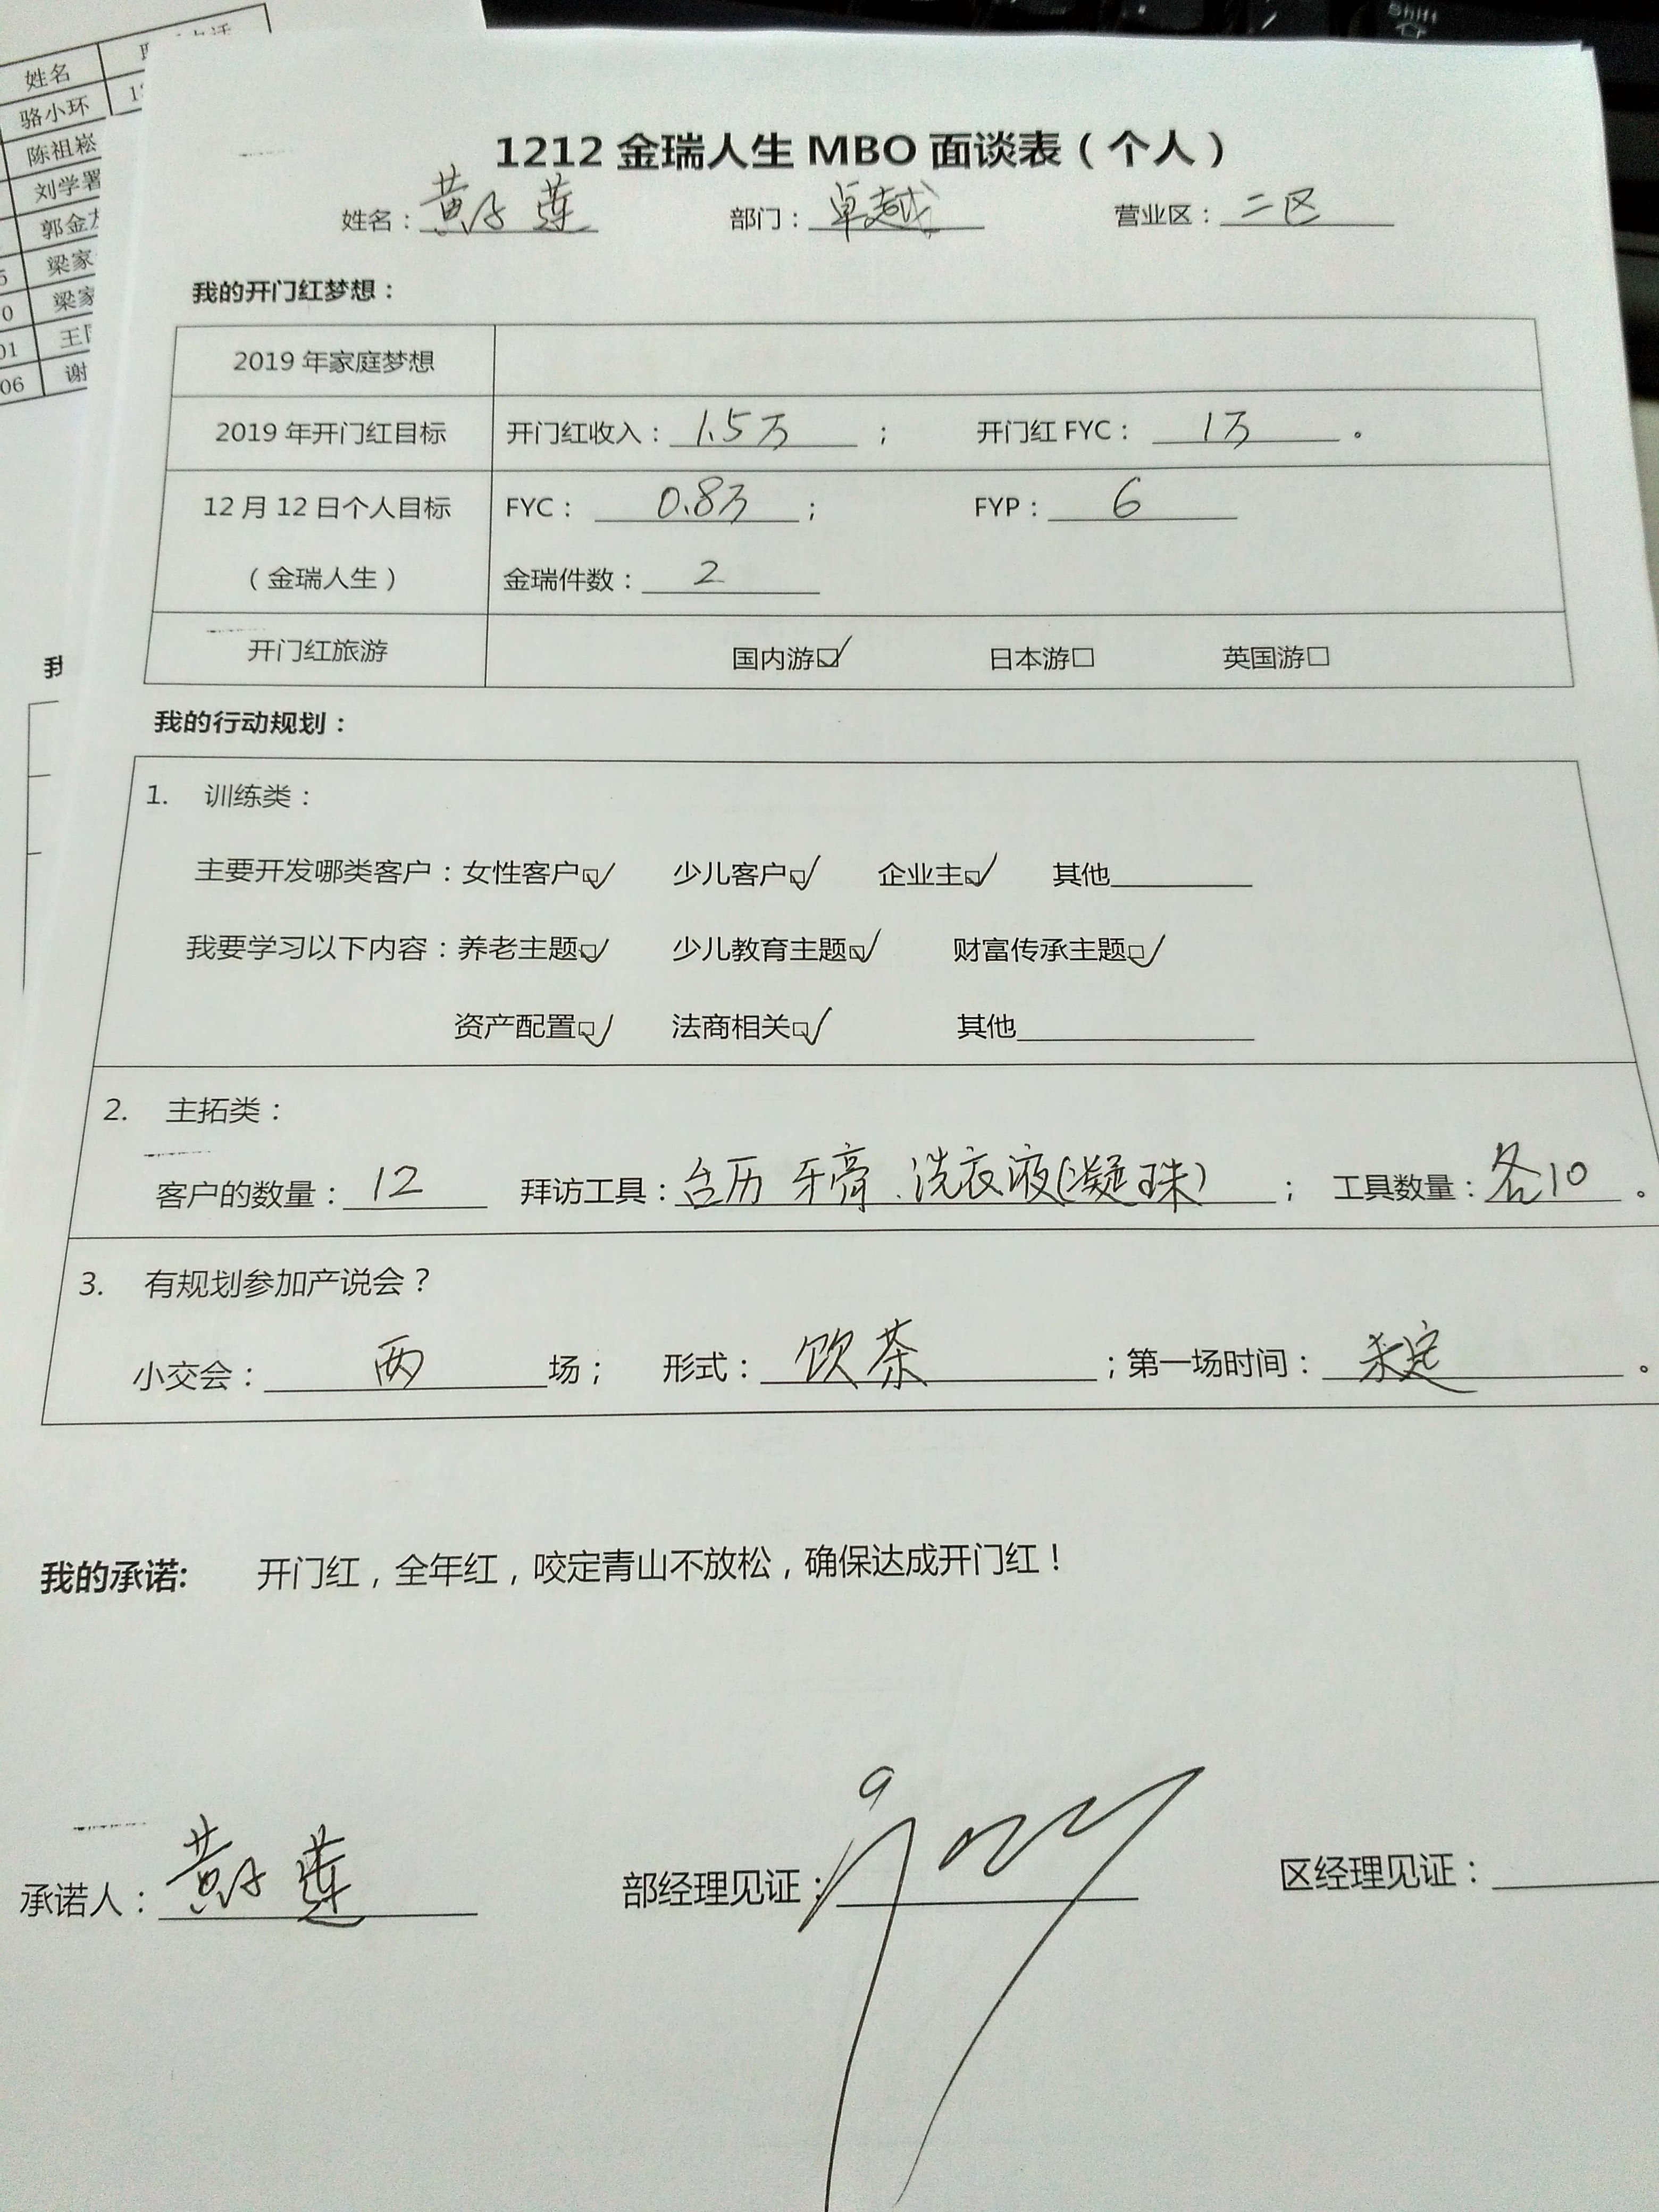 姓名
骆小环
陈祖崧
刘学署
郭金
梁家
梁家
01
06 谢
Shift
1212 金瑞人生 MBO 面谈表（个人）
姓名：黄好莲 部门：卓越 营业区：二区
我的开门红梦想：
2019 年家庭梦想
2019 年开门红目标 开门红收入：1.5万； 开门红 FYC：1万。
12 月 12 日个人目标 FYC：0.8万； FYP：6
（金瑞人生） 金瑞件数：2
开门红旅游 国内游☑ 日本游□ 英国游□
我的行动规划：
1. 训练类：
主要开发哪类客户：女性客户☑ 少儿客户☑ 企业主☑ 其他
我要学习以下内容：养老主题☑ 少儿教育主题☑ 财富传承主题☑
资产配置☑ 法商相关☑ 其他
2. 主拓类：
客户的数量：12 拜访工具：台历 牙膏、洗衣液(凝珠)； 工具数量：各10。
3. 有规划参加产说会？
小交会：两场； 形式：饮茶；第一场时间：未定。
我的承诺: 开门红，全年红，咬定青山不放松，确保达成开门红！
承诺人：黄好莲 部经理见证： 区经理见证：